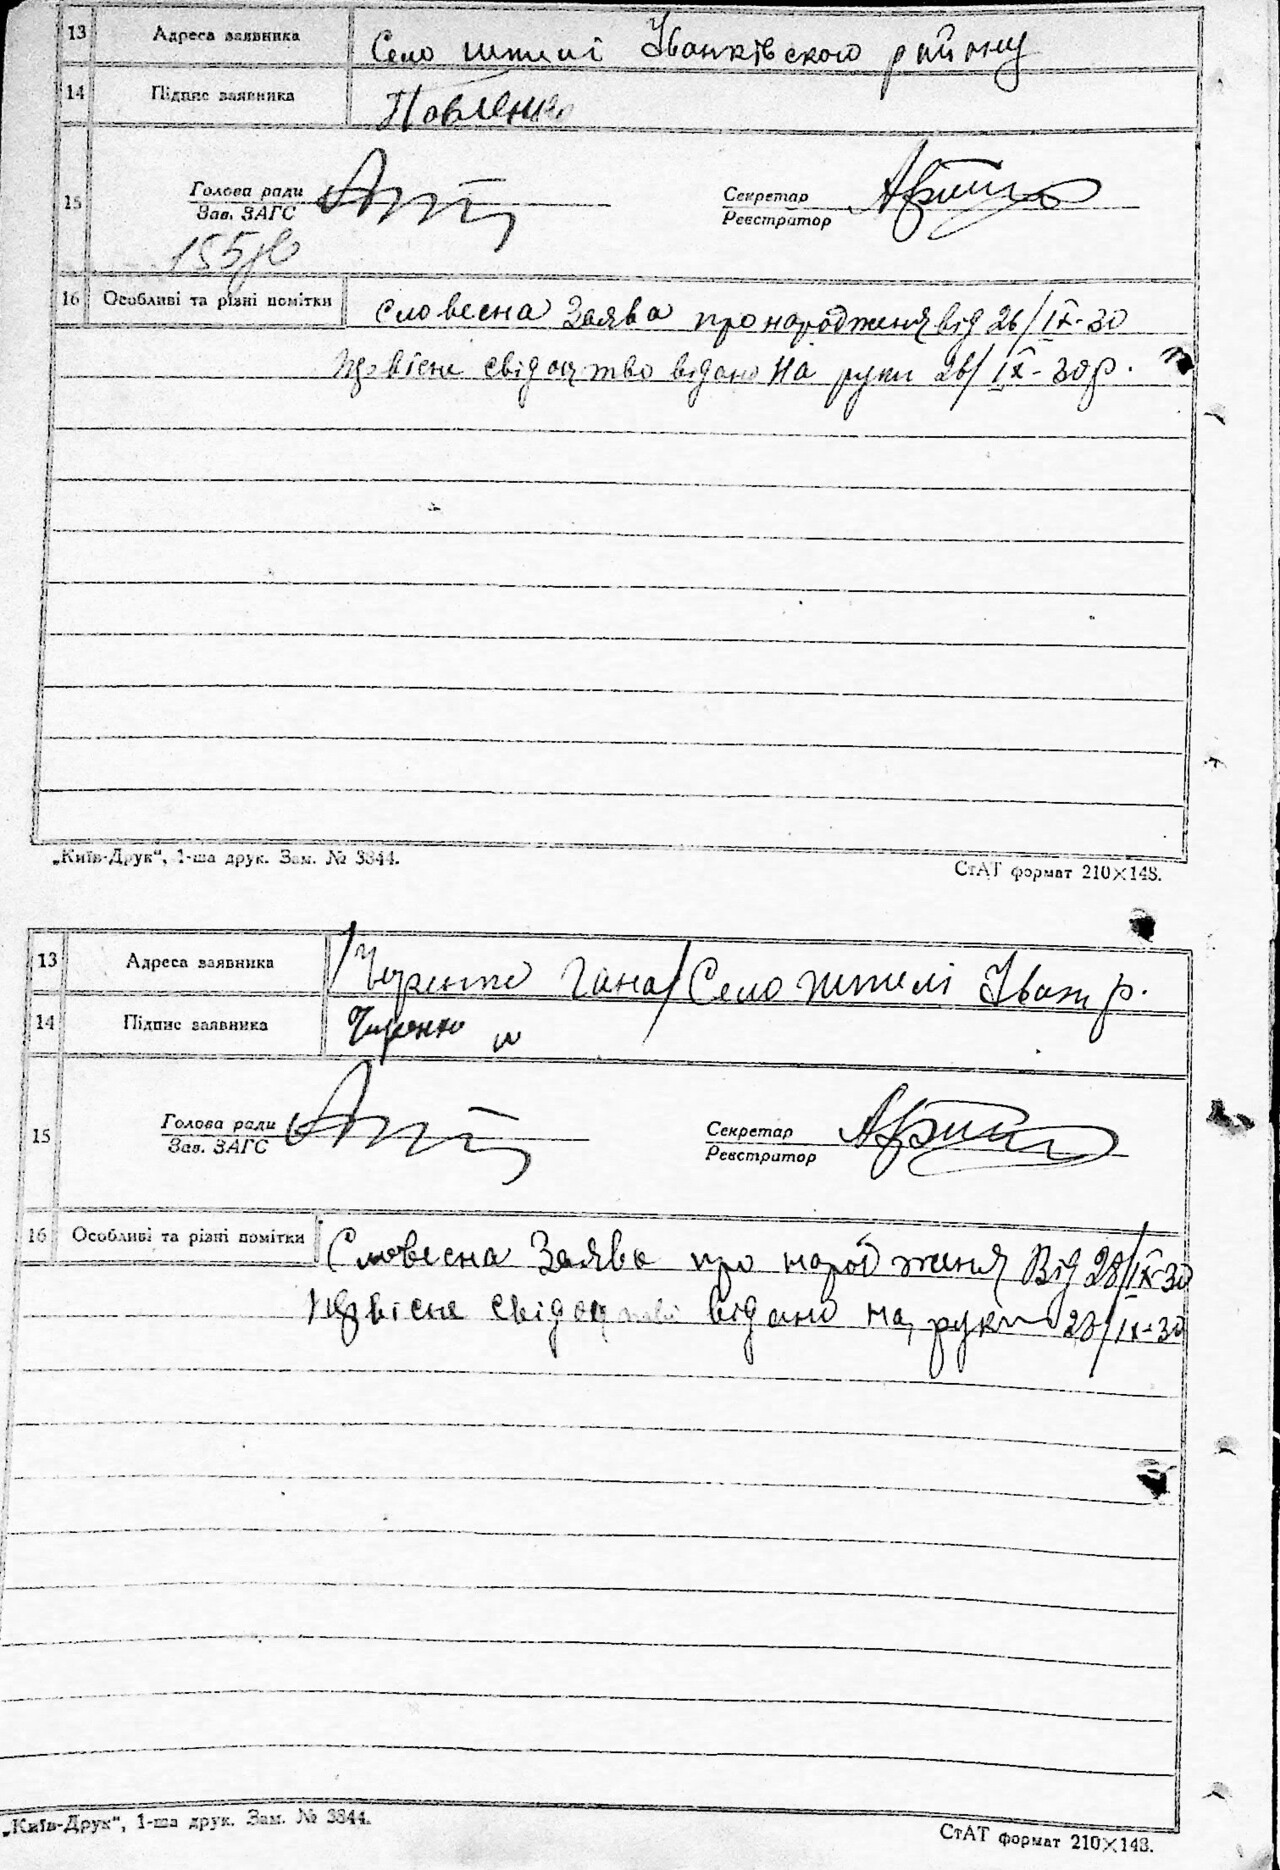 13 Адреса заявника Село Шпилі Іванківського району
14 Підпис заявника Павленко
15 Голова ради Секретар
Зав. ЗАГС Реєстратор
16 Особливі та різні помітки Словесна Заява про народженя від 26/IX-30
Первісне свідоцтво видано на руки 26/IX-30р.
„Київ-Друк“, 1-ша друк. Зам. № 3844.
СтАТ формат 210×148.
13 Адреса заявника Гана/Село Шпилі Іванк р.
14 Підпис заявника
15 Голова ради Секретар
Зав. ЗАГС Реєстратор
16 Особливі та різні помітки Словесна Заява про народженя Від 28/IX-30
Первісне видано на руки 28/IX-30
„Київ-Друк“, 1-ша друк. Зам. № 3844.
СтАТ формат 210×148.